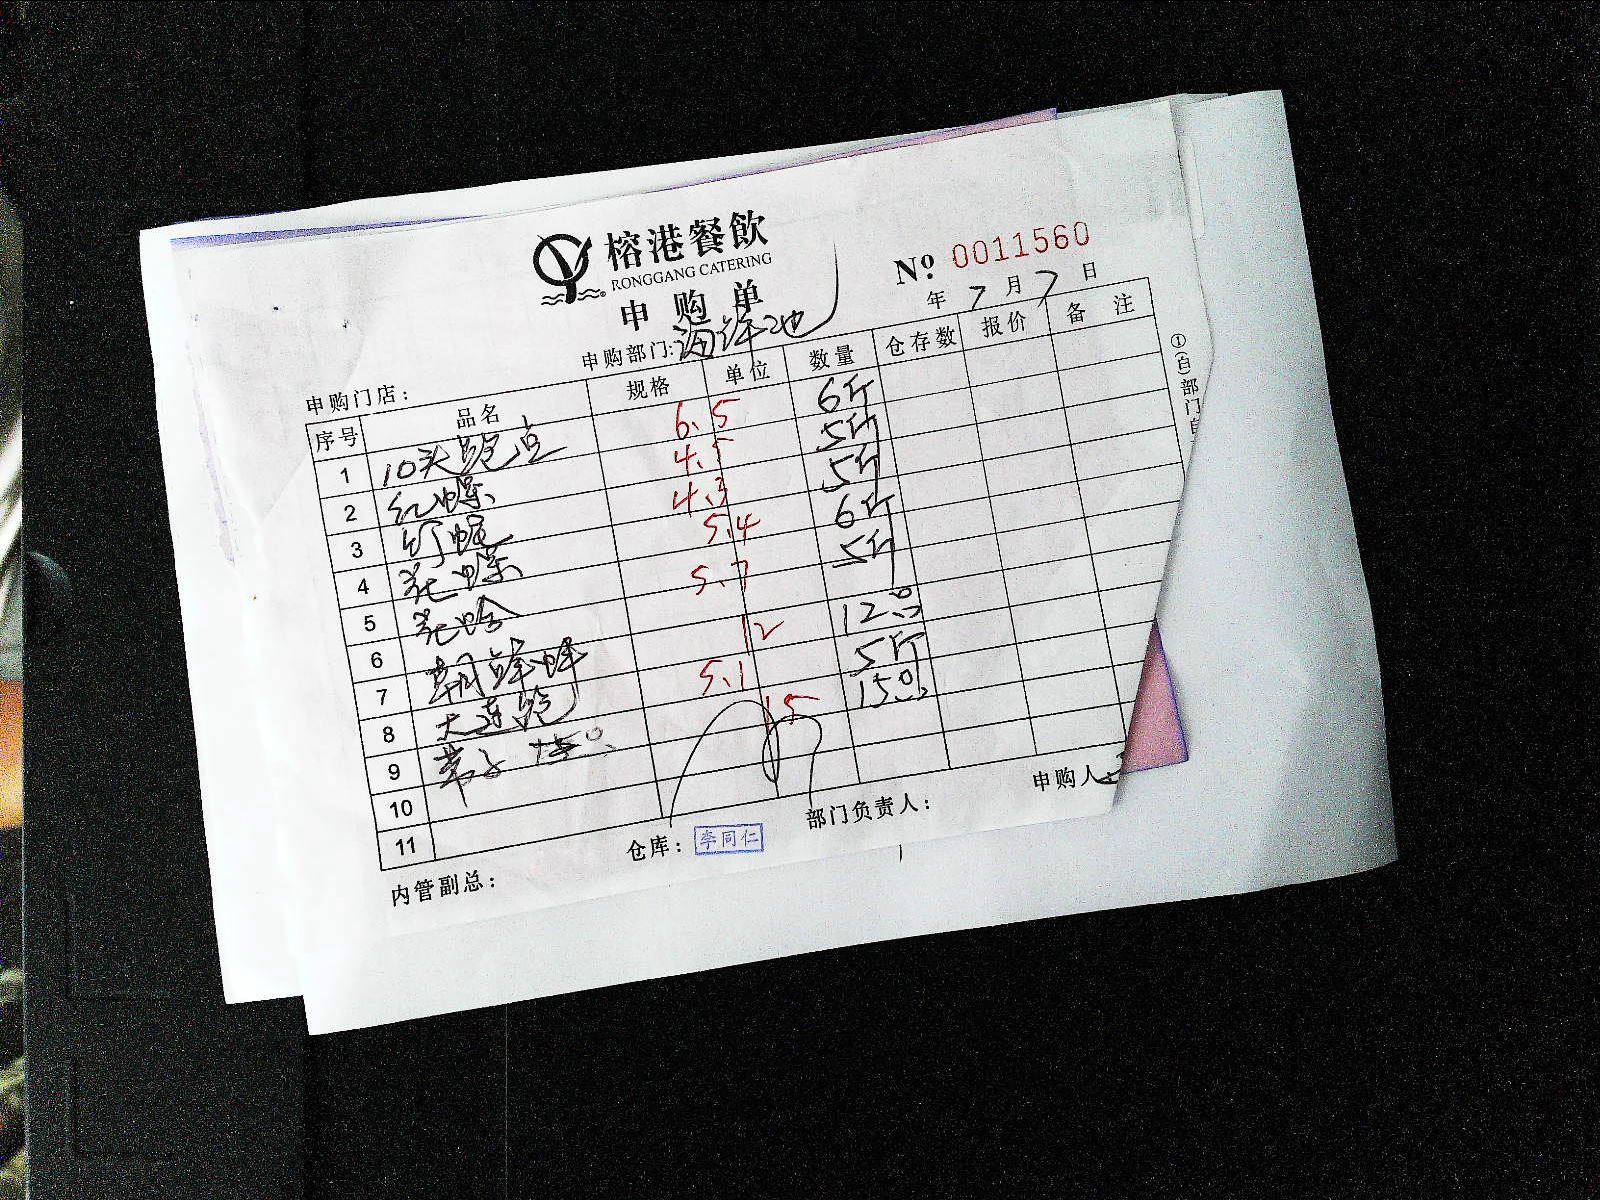 榕港餐飲
RONGGANG CATERING
申购单
№ 0011560
年 7 月 7 日
申购门店： 申购部门：海鲜池
序号 品名 规格 单位 数量 仓存数 报价 备注
1 10头鲍 6.5 6斤
2 红螺 4.5 5斤
3 4.3 5斤
4 花螺 5.4 6斤
5 花哈 5.7 5斤
6 12 12只
7 大连鲍 5.1 5斤
8 带子 15只 15 15只
9
10
11
内管副总： 仓库：李同仁 部门负责人： 申购人
①(白)部门自